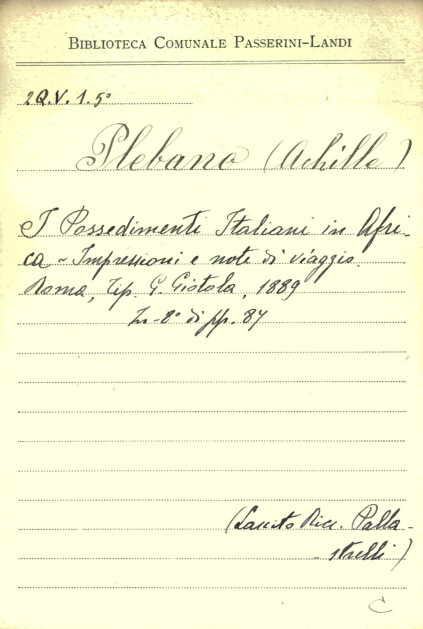 BIBLIOTECA COMUNALE PASSERINI-LANDI
2Q.V.1.5°
Plebano (Achille)
I Possedimenti Italiani in Afri-
ca - Impressioni e note di viaggio.
Roma, Tip. G. Ciotola, 1889
In-8° di pp. 87
(Lascito Ricc. Palla-
-strelli)
C